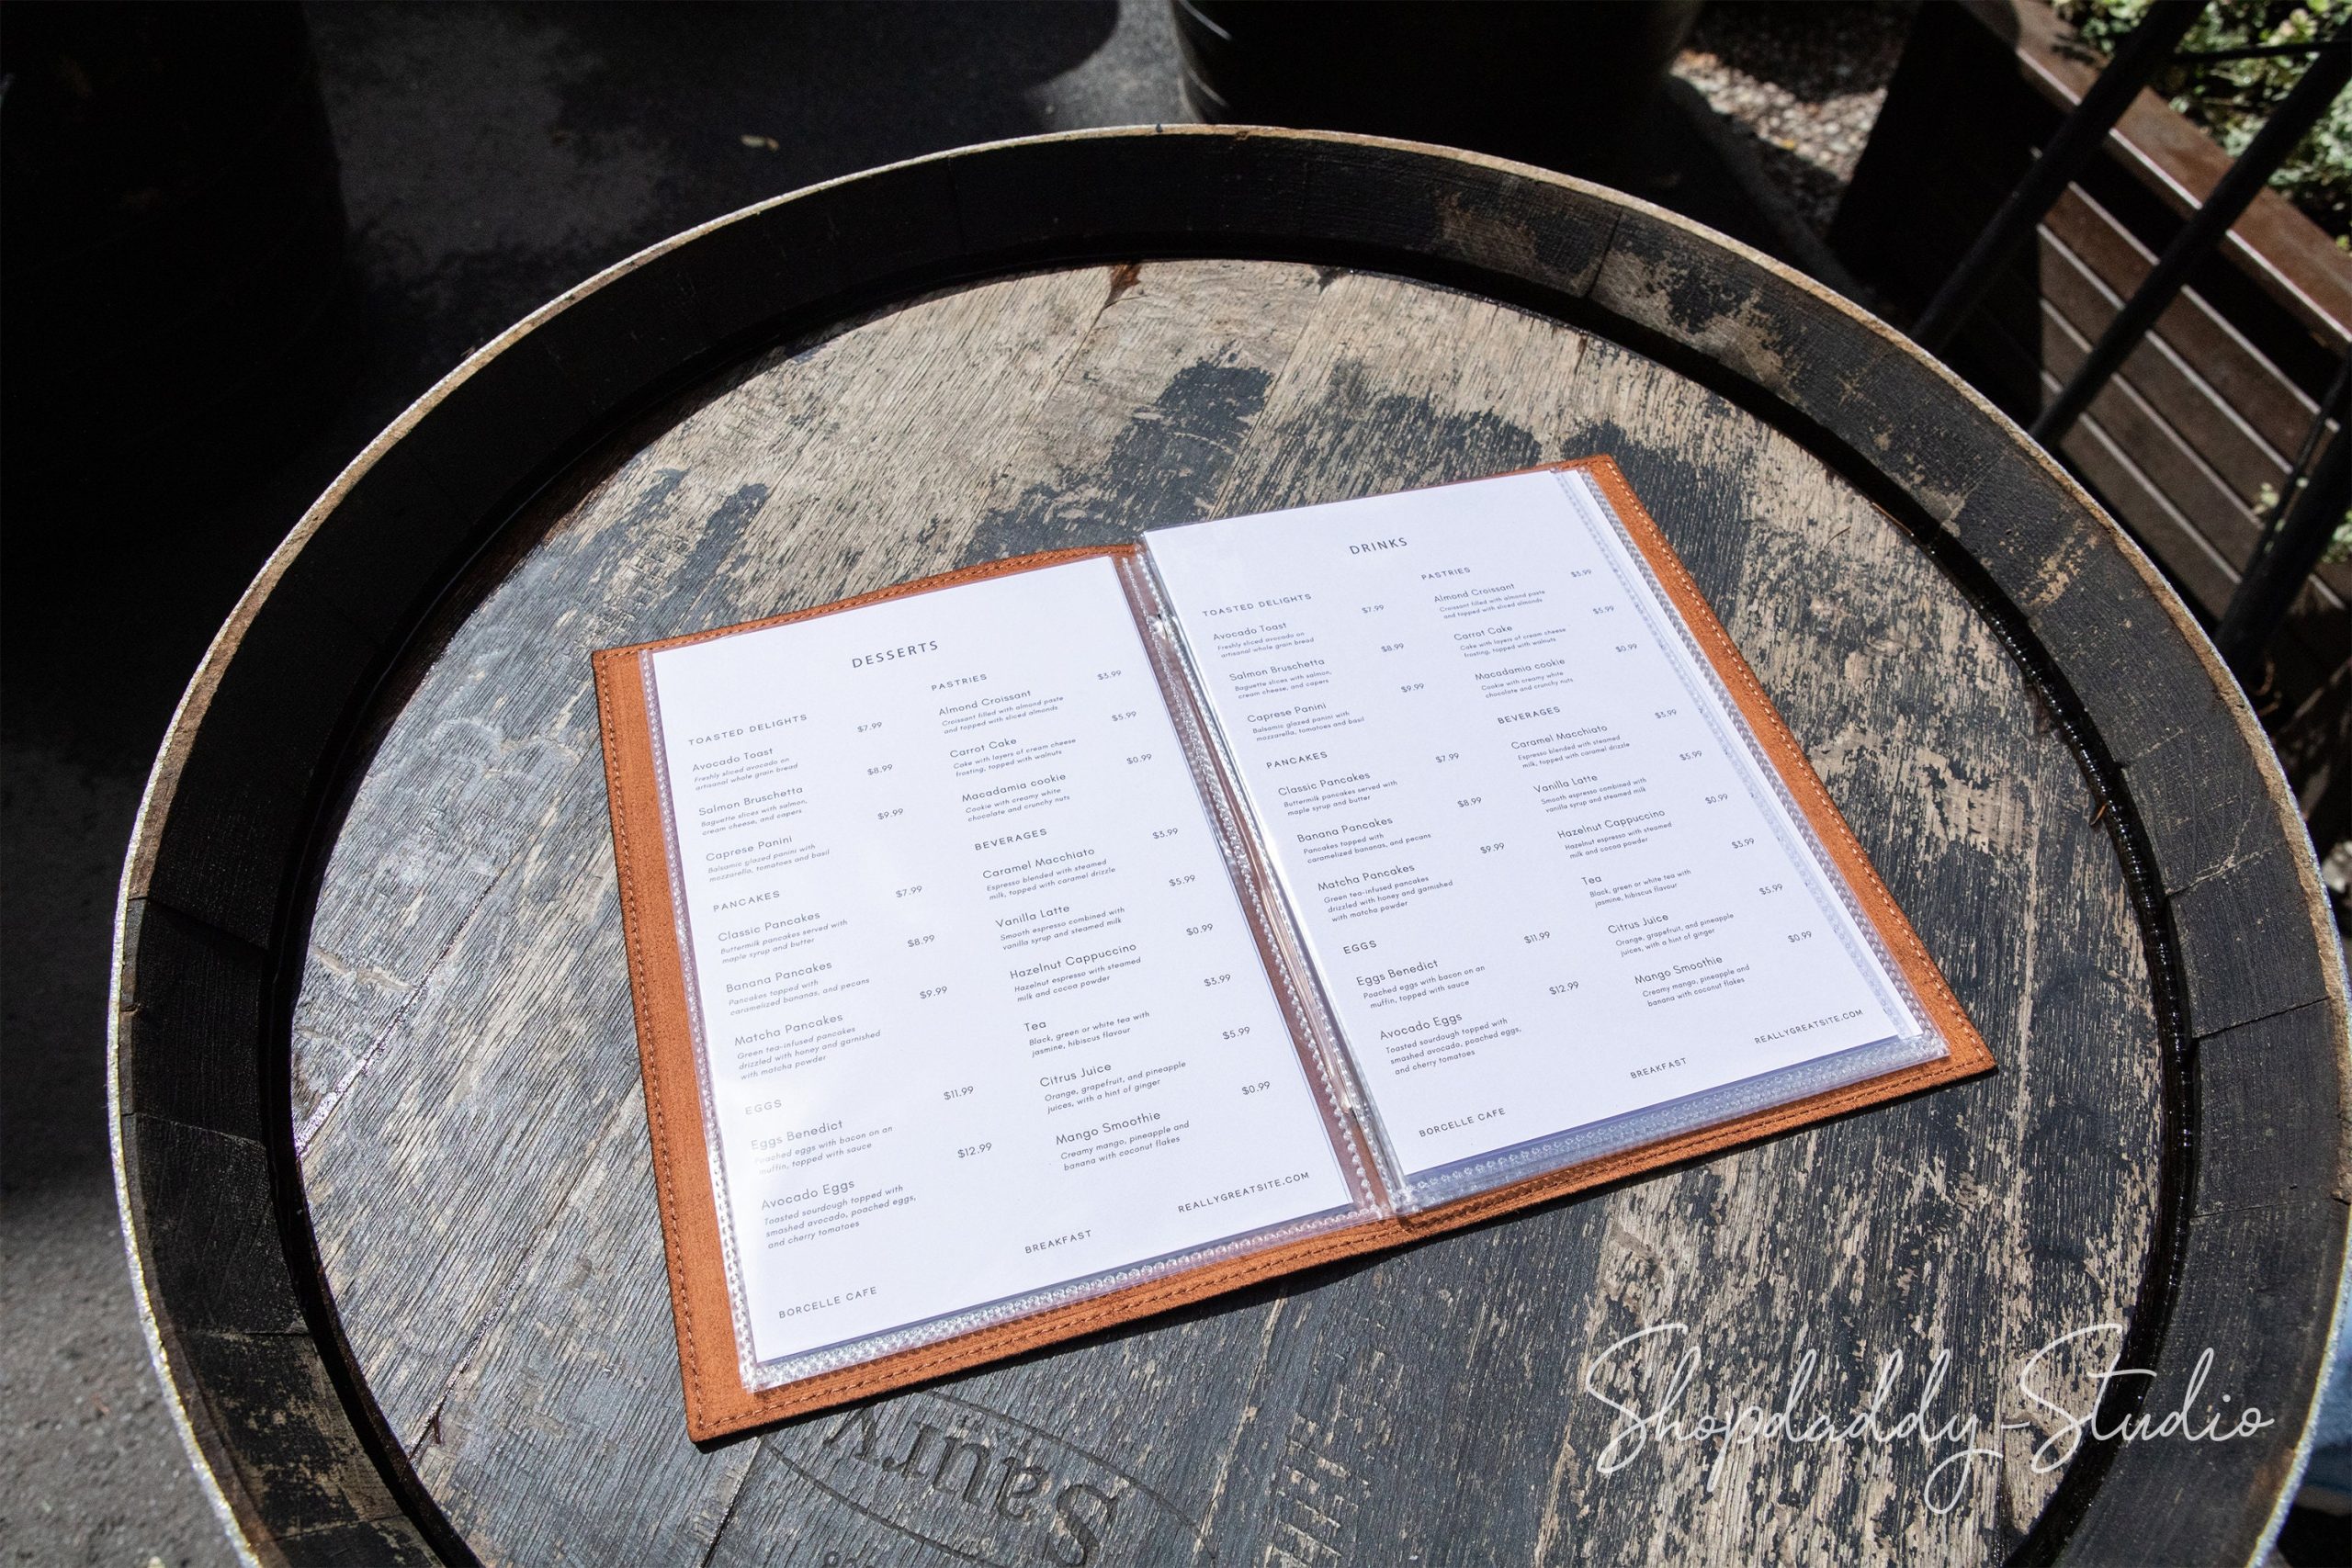 DESSERTS
TOASTED DELIGHTS
Avocado Toast $7.99
Freshly sliced avocado on
artisanal whole grain bread
Salmon Bruschetta $8.99
Baguette slices with salmon,
cream cheese, and capers
Caprese Panini $9.99
Balsamic glazed panini with
mozzarella, tomatoes and basil
PANCAKES
Classic Pancakes $7.99
Buttermilk pancakes served with
maple syrup and butter
Banana Pancakes $8.99
Pancakes topped with
caramelized bananas, and pecans
Matcha Pancakes $9.99
Green tea-infused pancakes
drizzled with honey and garnished
with matcha powder
EGGS
Eggs Benedict $11.99
Poached eggs with bacon on an
muffin, topped with sauce
Avocado Eggs $12.99
Toasted sourdough topped with
smashed avocado, poached eggs,
and cherry tomatoes
PASTRIES
Almond Croissant $3.99
Croissant filled with almond paste
and topped with sliced almonds
Carrot Cake $5.99
Cake with layers of cream cheese
frosting, topped with walnuts
Macadamia cookie $0.99
Cookie with creamy white
chocolate and crunchy nuts
BEVERAGES
Caramel Macchiato $3.99
Espresso blended with steamed
milk, topped with caramel drizzle
Vanilla Latte $5.99
Smooth espresso combined with
vanilla syrup and steamed milk
Hazelnut Cappuccino $0.99
Hazelnut espresso with steamed
milk and cocoa powder
Tea $3.99
Black, green or white tea with
jasmine, hibiscus flavour
Citrus Juice $5.99
Orange, grapefruit, and pineapple
juices, with a hint of ginger
Mango Smoothie $0.99
Creamy mango, pineapple and
banana with coconut flakes
BORCELLE CAFE
BREAKFAST
REALLYGREATSITE.COM
DRINKS
TOASTED DELIGHTS
Avocado Toast $7.99
Freshly sliced avocado on
artisanal whole grain bread
Salmon Bruschetta $8.99
Baguette slices with salmon,
cream cheese, and capers
Caprese Panini $9.99
Balsamic glazed panini with
mozzarella, tomatoes and basil
PANCAKES
Classic Pancakes $7.99
Buttermilk pancakes served with
maple syrup and butter
Banana Pancakes $8.99
Pancakes topped with
caramelized bananas, and pecans
Matcha Pancakes $9.99
Green tea-infused pancakes
drizzled with honey and garnished
with matcha powder
EGGS
Eggs Benedict $11.99
Poached eggs with bacon on an
muffin, topped with sauce
Avocado Eggs $12.99
Toasted sourdough topped with
smashed avocado, poached eggs,
and cherry tomatoes
PASTRIES
Almond Croissant $3.99
Croissant filled with almond paste
and topped with sliced almonds
Carrot Cake $5.99
Cake with layers of cream cheese
frosting, topped with walnuts
Macadamia cookie $0.99
Cookie with creamy white
chocolate and crunchy nuts
BEVERAGES
Caramel Macchiato $3.99
Espresso blended with steamed
milk, topped with caramel drizzle
Vanilla Latte $5.99
Smooth espresso combined with
vanilla syrup and steamed milk
Hazelnut Cappuccino $0.99
Hazelnut espresso with steamed
milk and cocoa powder
Tea $3.99
Black, green or white tea with
jasmine, hibiscus flavour
Citrus Juice $5.99
Orange, grapefruit, and pineapple
juices, with a hint of ginger
Mango Smoothie $0.99
Creamy mango, pineapple and
banana with coconut flakes
BORCELLE CAFE
BREAKFAST
REALLYGREATSITE.COM
Saury
Shopdaddy-Studio